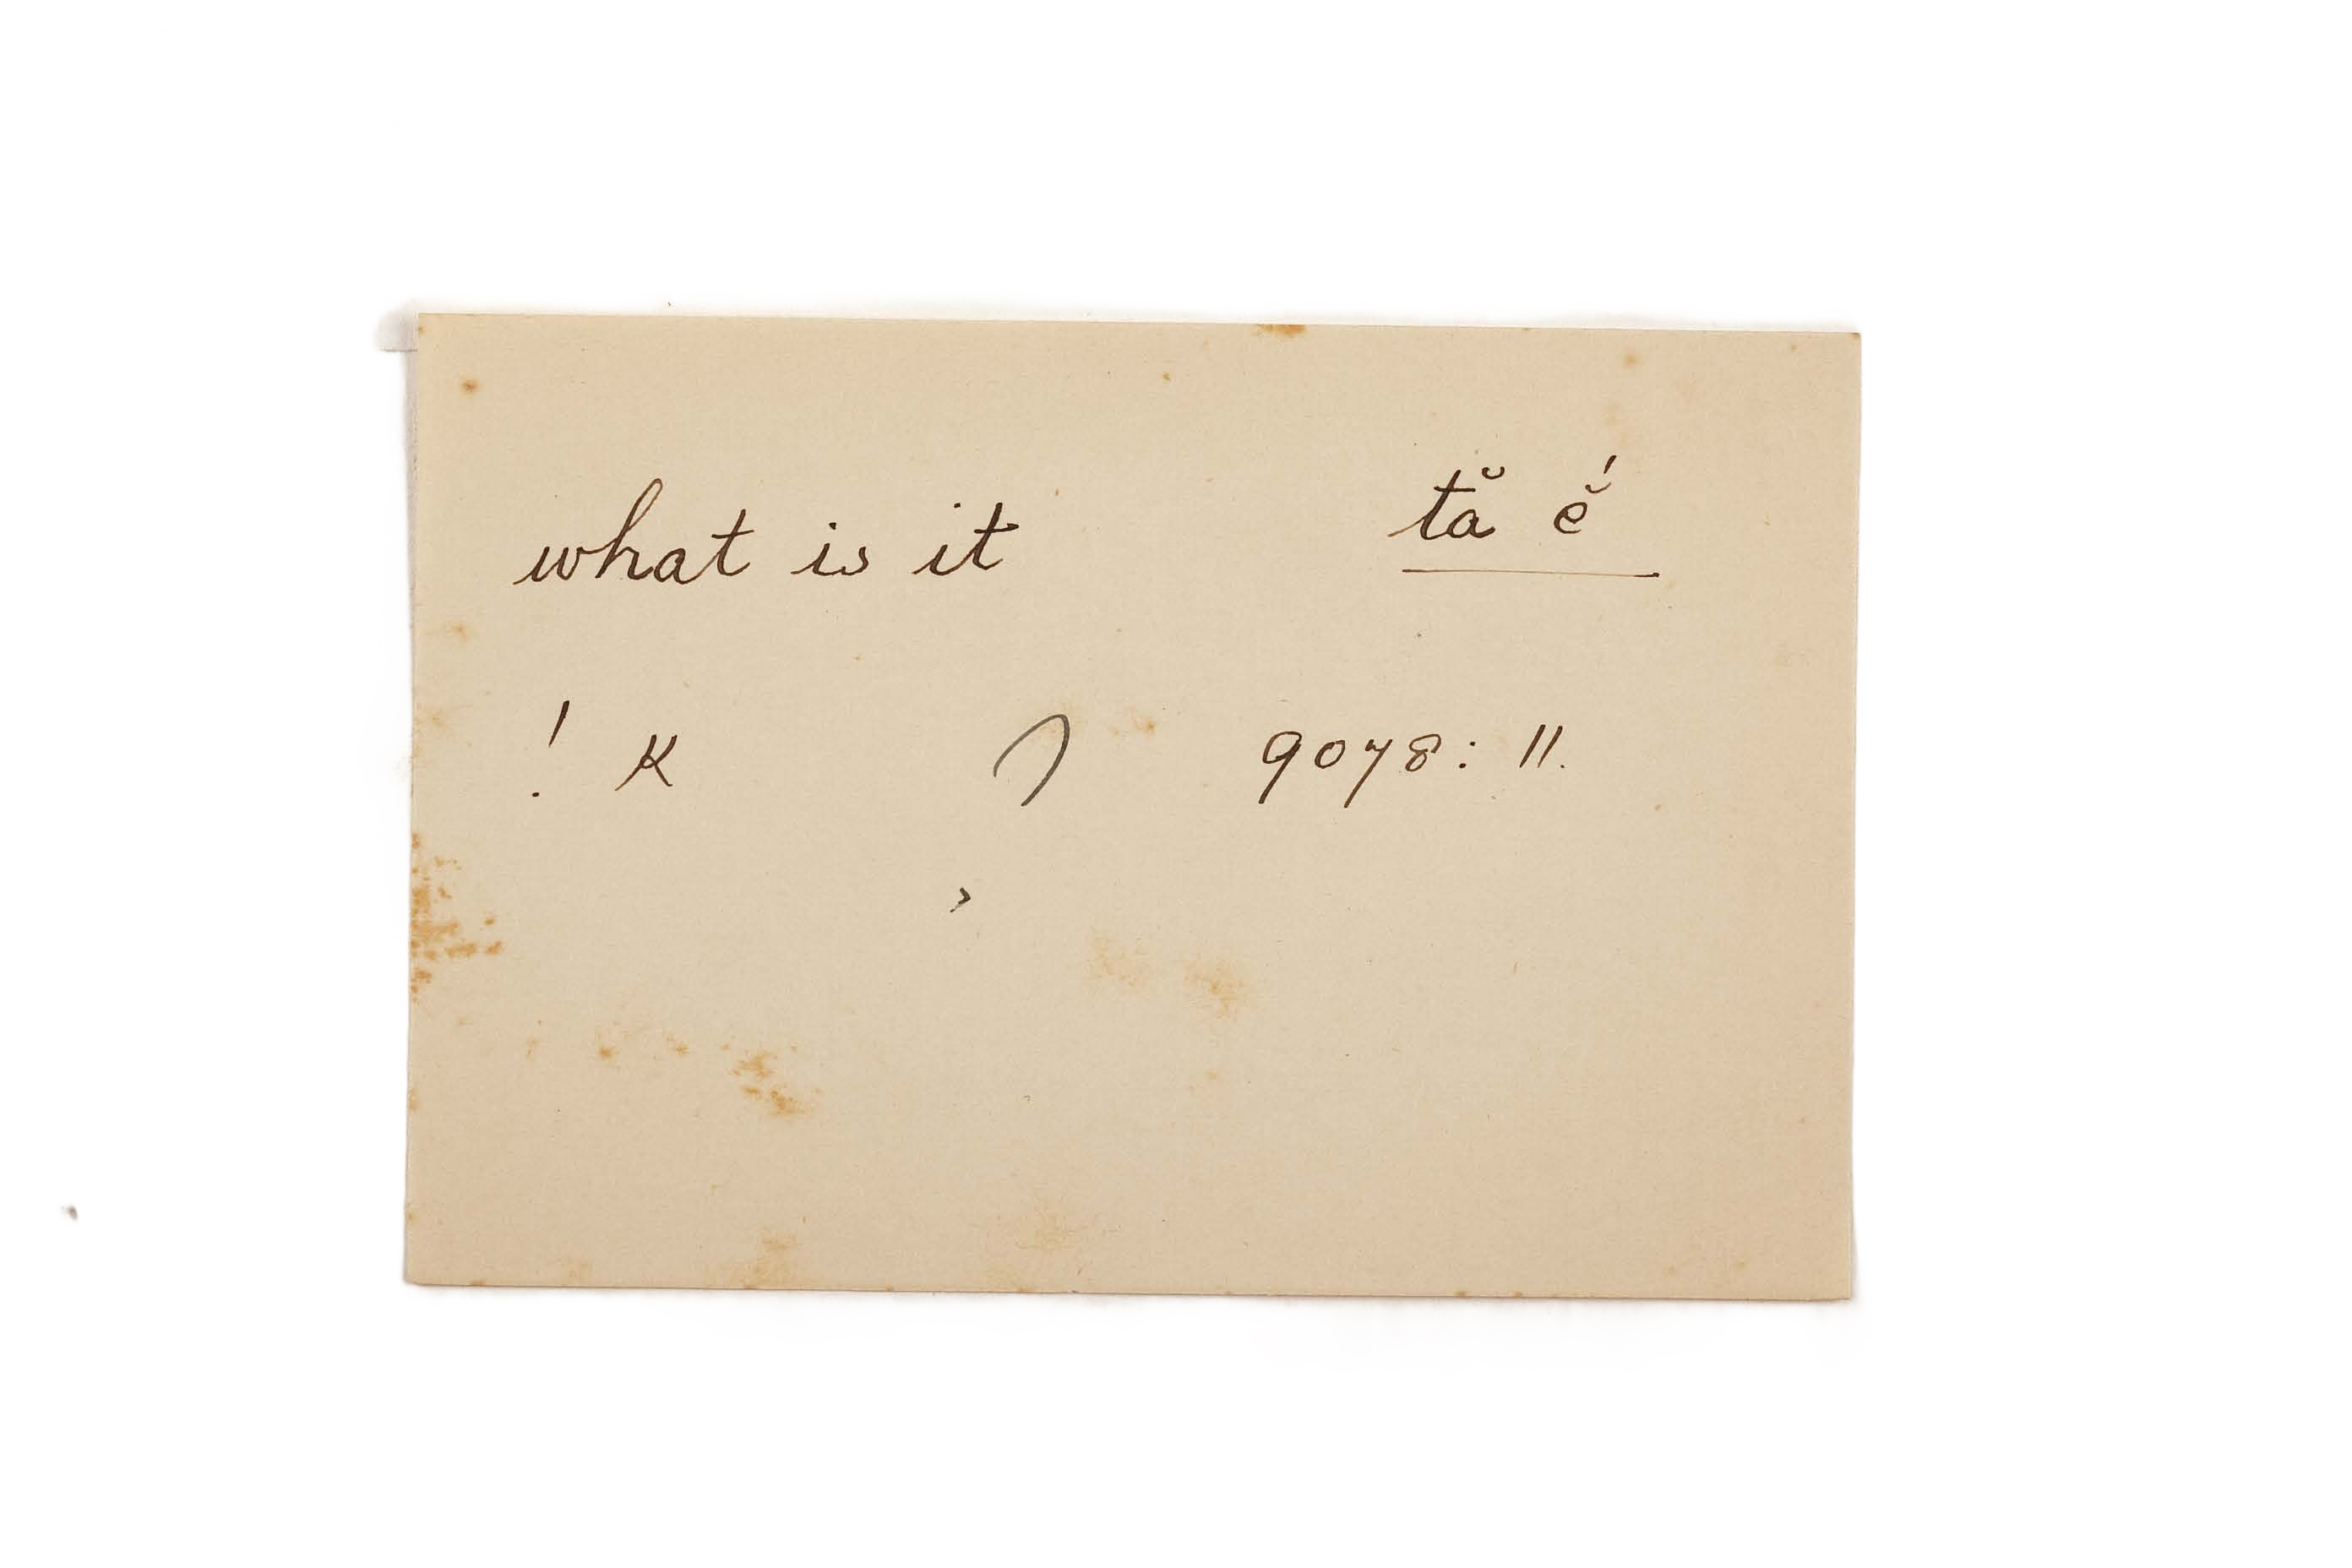 what is it tă ĕ́
! K 9078: 11.